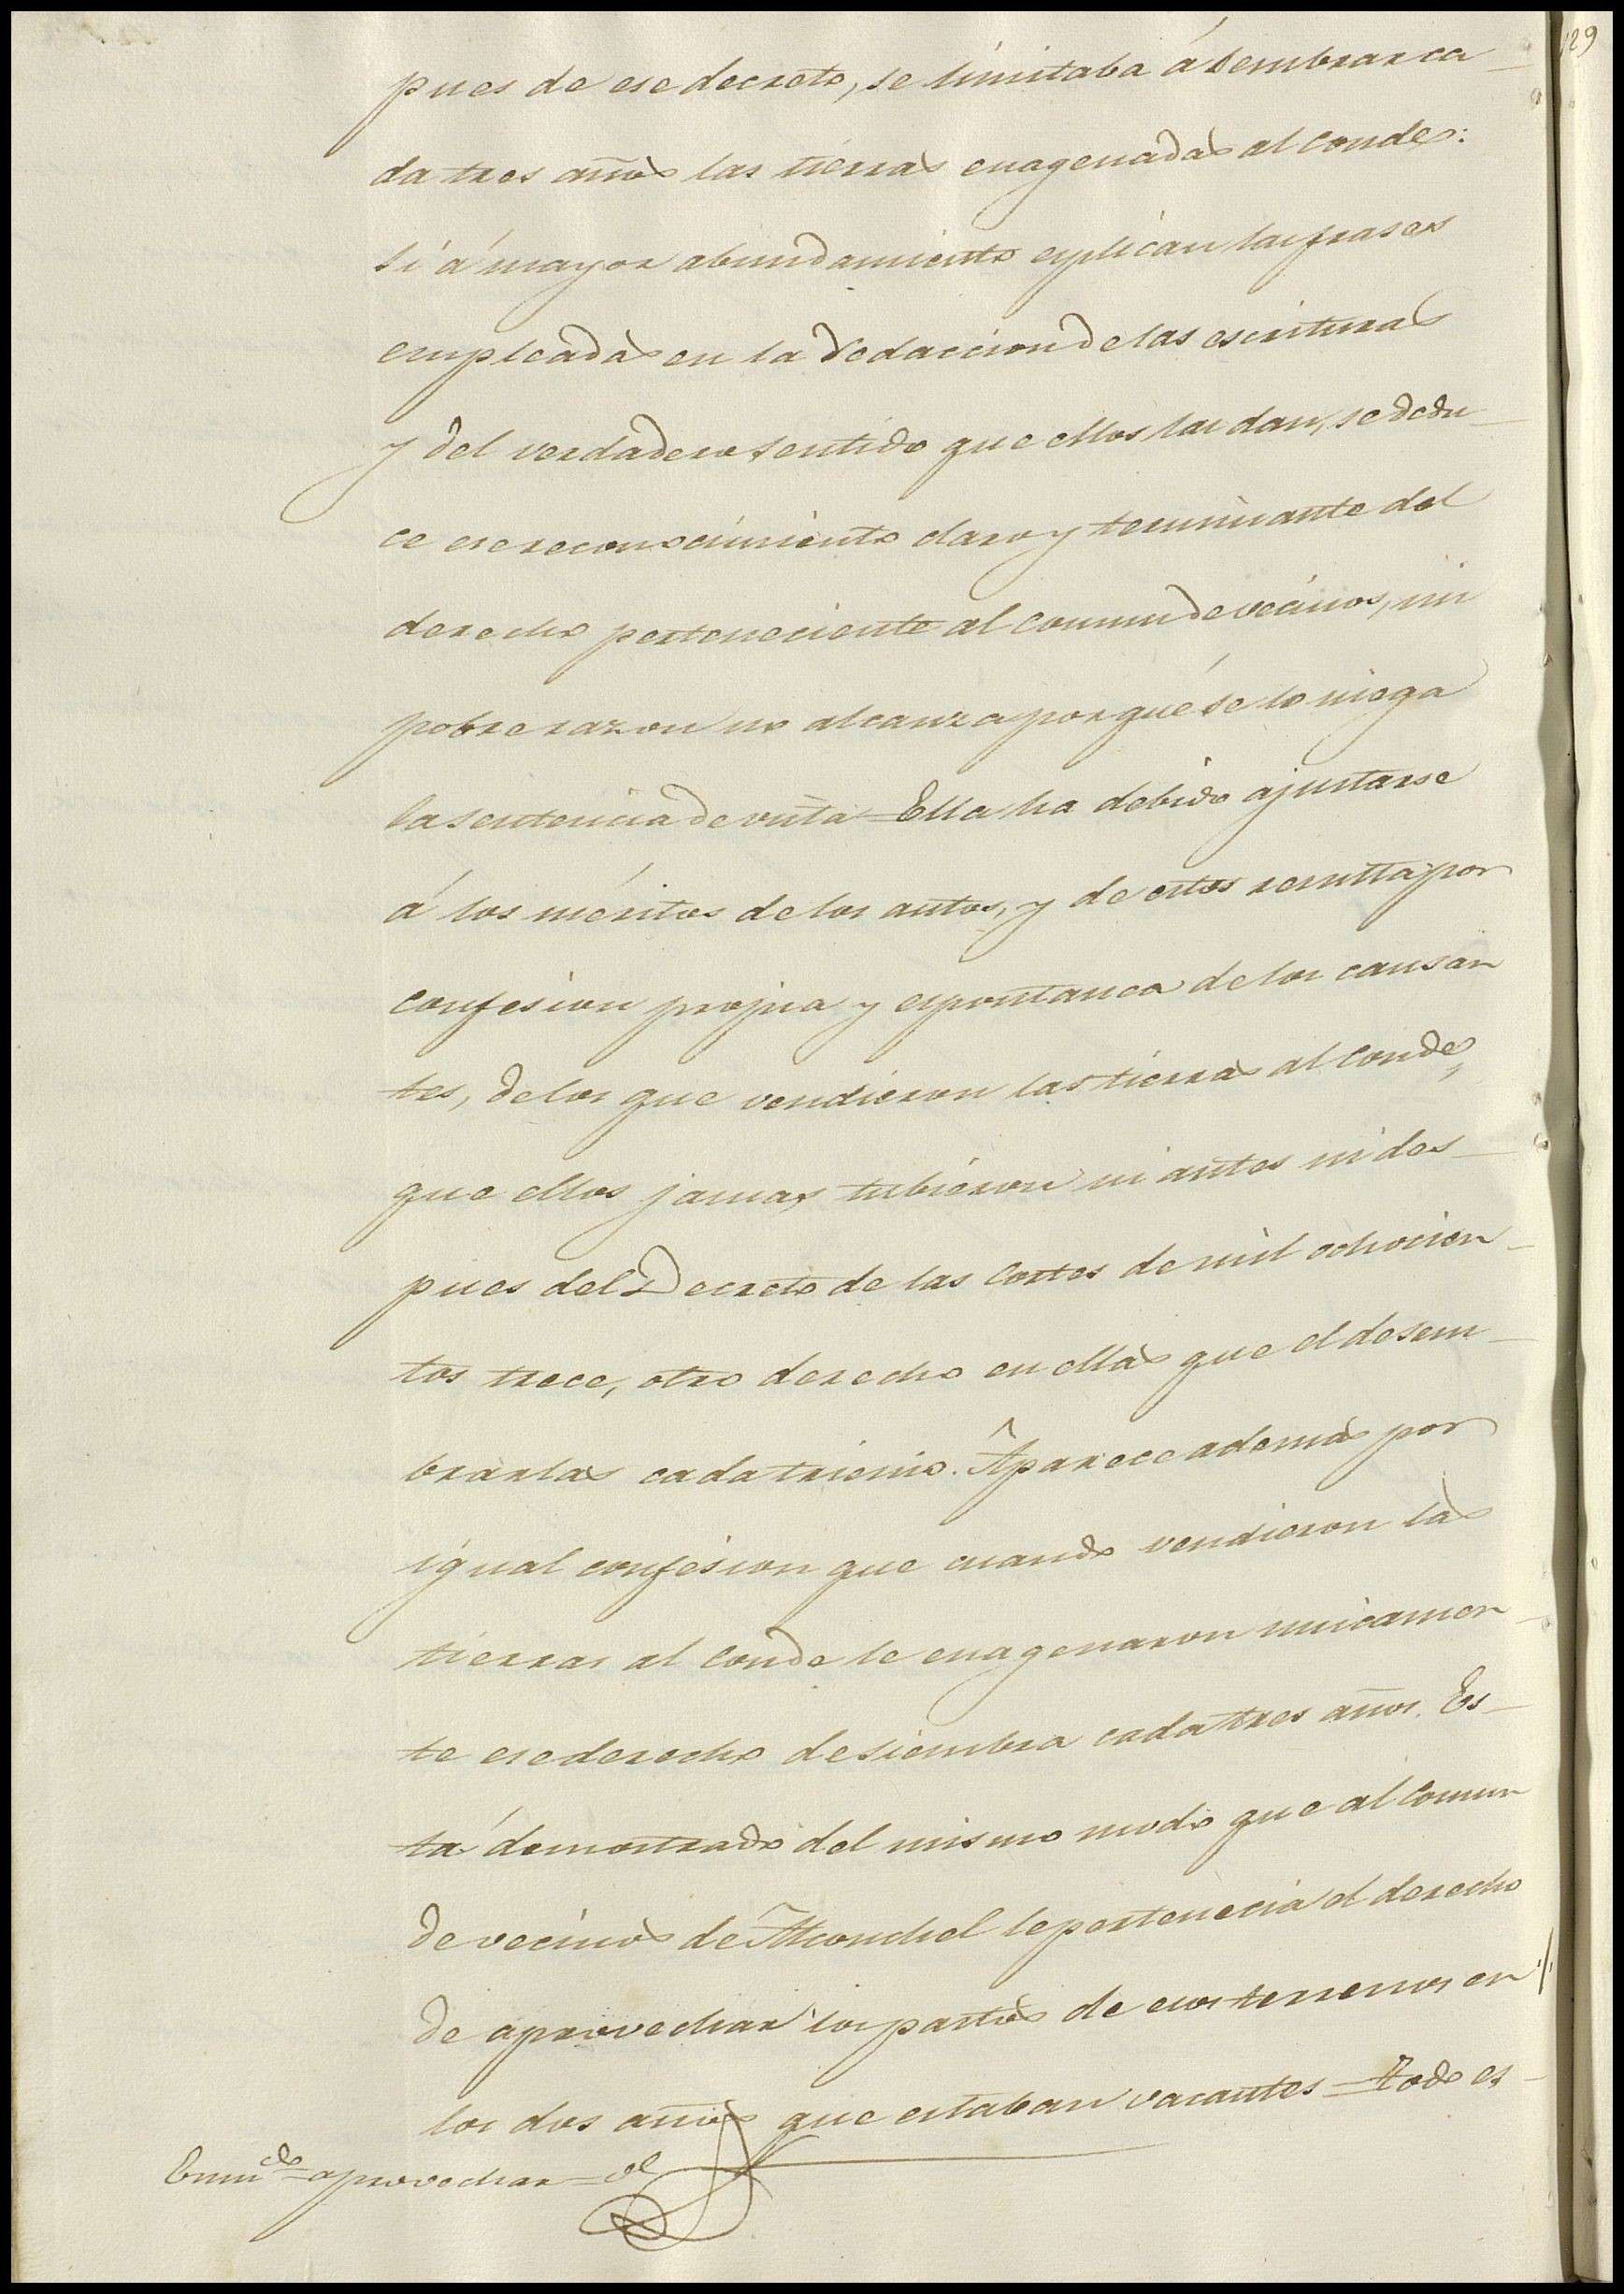 129
pues de ese decreto, se limitaba á sembrar ca-
da tres años las tierras enagenadas al Conde:
si á mayor abundamiento esplican las frases
empleadas en la redaccion de las escrituras
y del verdadero sentido que ellos las dan, se dedu-
ce ese reconocimiento claro y terminante del
derecho perteneciente al comun de vecinos, mi
pobre razon no alcanza por qué se lo niega
la sentencia de vista = Ella ha debido ajustarse
á los méritos de los autos, y de estos resulta por
confesion propia y espontanea de los causan
tes, de los que vendieron las tierras al Conde,
que ellos jamas tubieron ni antes ni des-
pues del Decreto de las Cortes de mil ochocien-
tos trece, otro derecho en ellas que el de sem-
brarlas cada trienio. Aparece ademas por
igual confesion que cuando vendieron las
tierras al Conde le enagenaron unicamen-
te ese derecho de siembra cada tres años. Es-
tá demostrado del mismo modo que al comun
de vecinos de Alconchel le pertenecia el derecho
de aprovechar los pastos de esos terrenos en
los dos años que estaban vacantes = Todo es-
Enmdo = aprovechar = vl